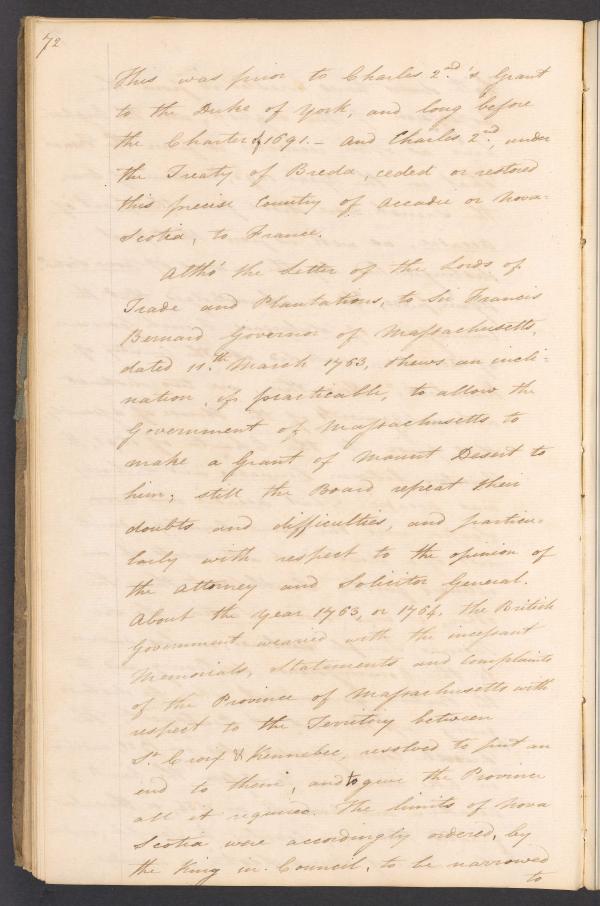 72
This was prior to Charles 2nd's Grant
to the Duke of York, and long before
the Charter of 1691. — and Charles 2nd, under
the Treaty of Breda, ceded or restored
this precise Country of Accadie or Nova-
Scotia, to France.
Altho' the Letter of the Lords of
Trade and Plantations, to Sir Francis
Bernard Governor of Massachusetts,
dated 11th March 1763, shews an incli-
nation, if practicable, to allow the
Government of Massachusetts to
make a Grant of Mount Desert to
him; still the Board repeat their
doubts and difficulties, and particu-
larly with respect to the opinion of
the Attorney and Solicitor General.
About the Year 1763, or 1764, the British
Government wearied with the incessant
Memorials, Statements and Complaints
of the Province of Massachusetts with
respect to the Territory between
St Croix & Kennebec, resolved to put an
end to them, and to give the Province
all it required. The limits of Nova
Scotia were accordingly ordered, by
the King in Council, to be narrowed
to